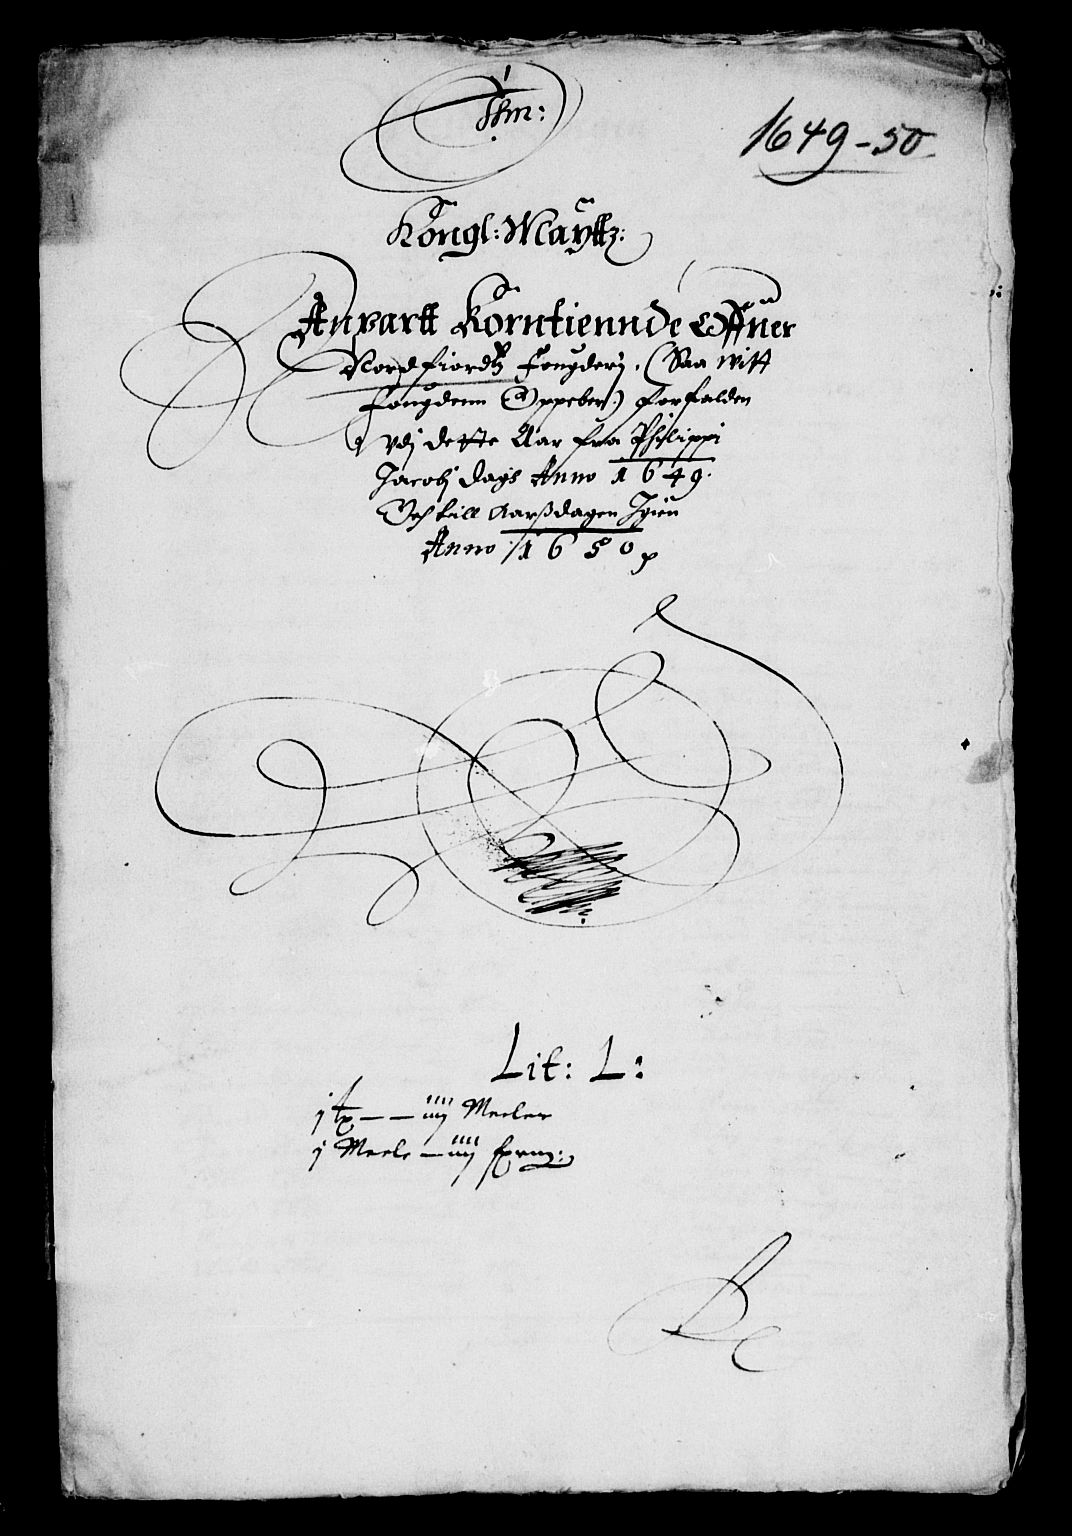 1649-50
Kongl: Maÿttz:
Anpartt Korntiennde Offuer
Nordfiordtz Fougderij, (Saa witt
Fougdenn Oppeber:) forfalden
vdj dette Aar fra Philippi
Jacobj dags Anno 1649.
Och till Aarßdagen Igien
Anno 1650
Lit: L:
j tp — — iiij Meeler
j Meele — iiij